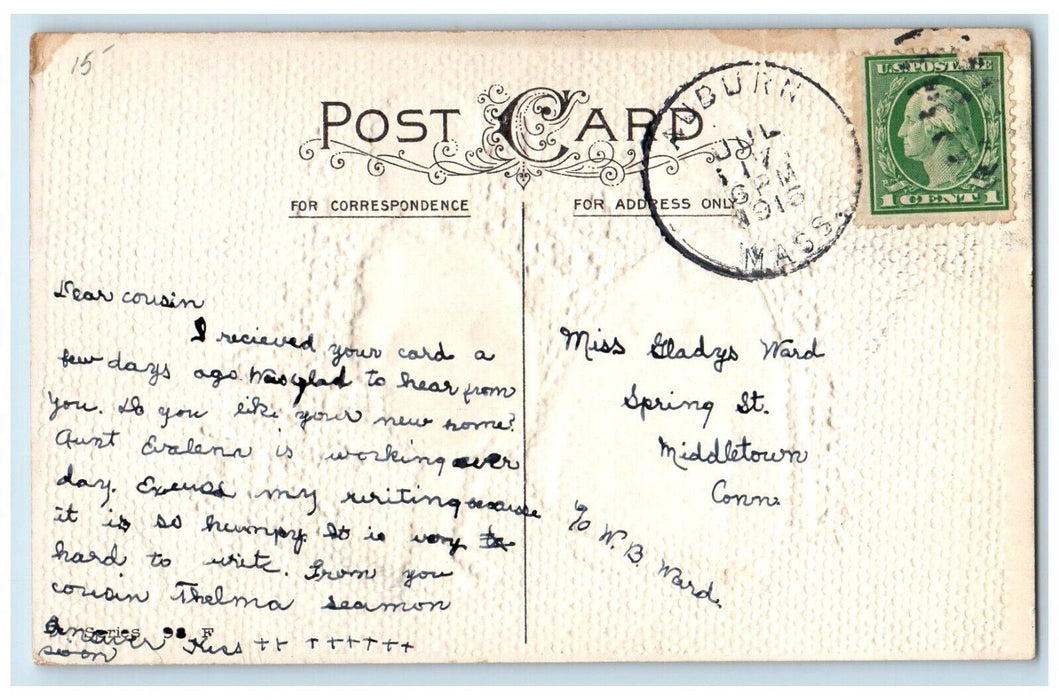 15
POST CARD
FOR CORRESPONDENCE
FOR ADDRESS ONLY
AUBURN
JUL
17
6 PM
1915
MASS.
U.S. POSTAGE
1 CENT 1
Dear cousin
I recieved your card a
few days ago. Was glad to hear from
you. Do you like your new home?
Aunt Evalena is working ever
day. Excuse my writing because
it is so humpy. It is very to
hard to write. From you
cousin Thelma Seamon
Answer Kiss ++ ++++++
soon
Series 98 F
Miss Gladys Ward
Spring St.
Middletown
Conn.
c/o W. B. Ward.